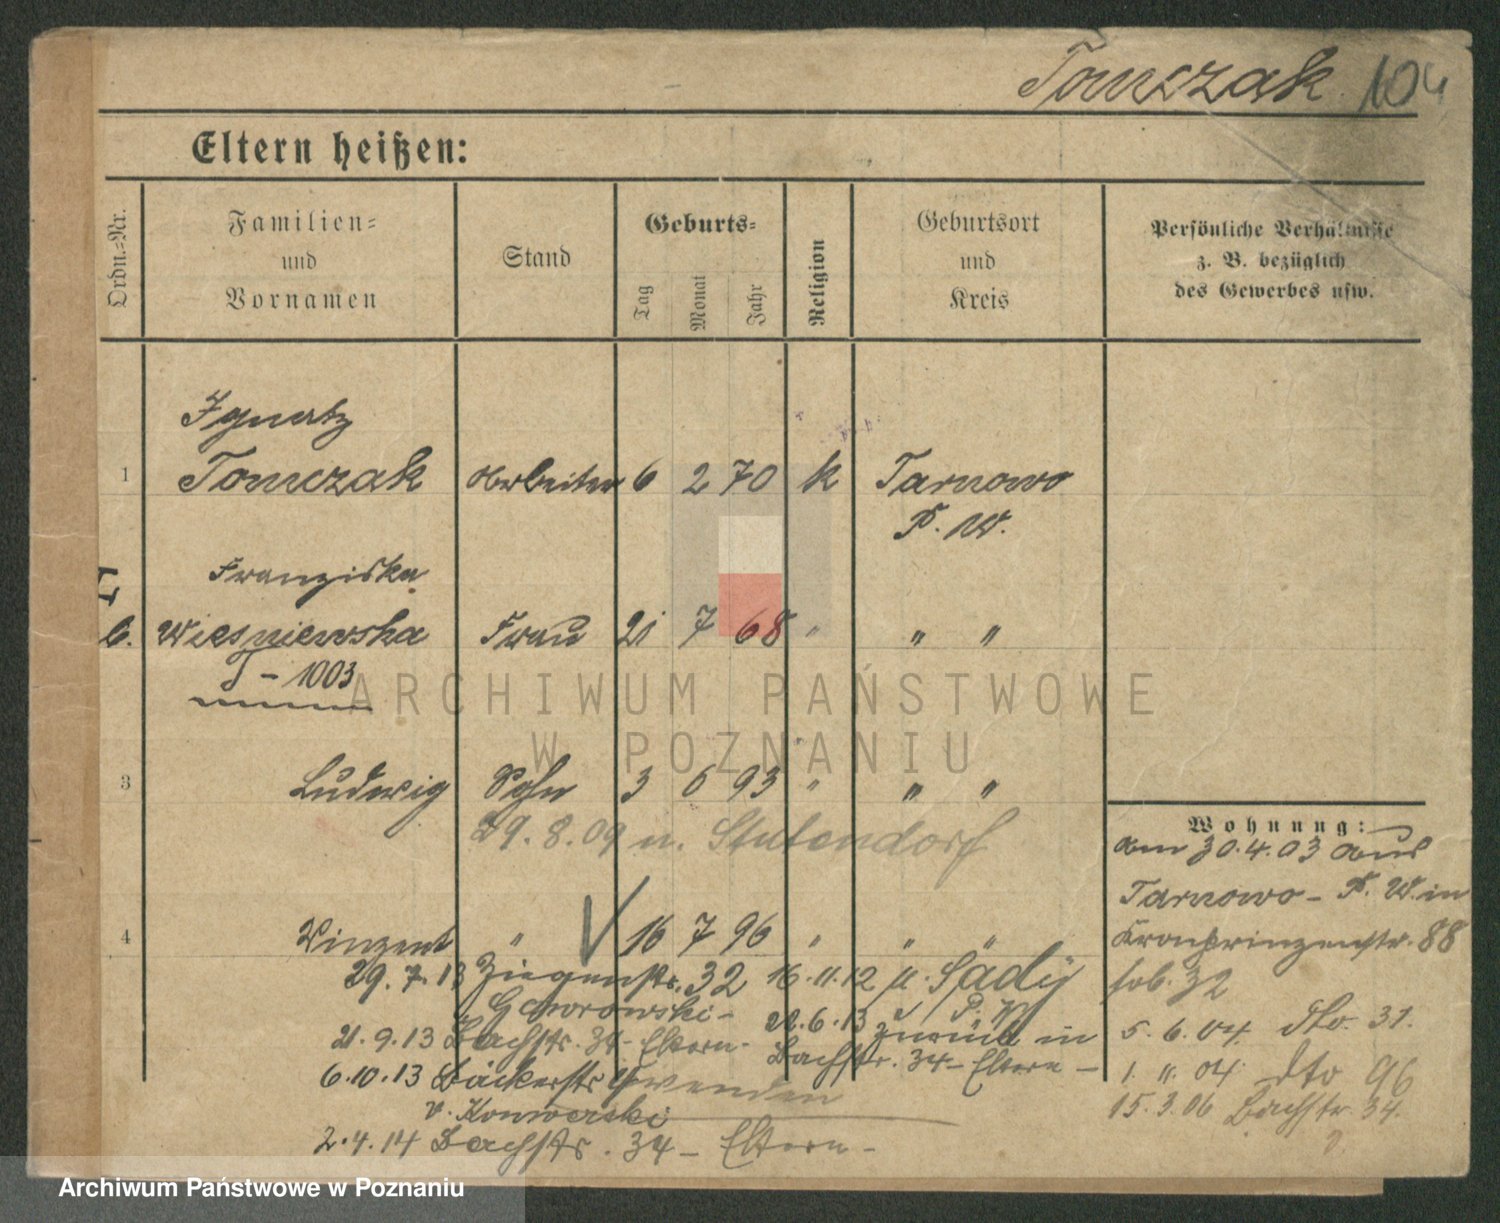 Tomczak 104
Eltern heißen:
Ordn.=Nr.
Familien=
und
Vornamen
Stand
Geburts=
Tag
Monat
Jahr
Religion
Geburtsort
und
Kreis
Persönliche Verhältnisse
z. B. bezüglich
des Gewerbes usw.
Ignatz
1 Tomczak Arbeiter 6 2 70 k Tarnowo
P. W.
Franziska
b. Wiesniewska Frau 21 7 68 " " "
T - 1003
3 Ludwig Sohn 3 6 93 " " "
29. 8. 09 n. Stutendorf
4 Vinzent " 16 7 96 " " "
29. 7. 13 Ziegenstr. 32 16. 11. 12 n. Sady
Gaworowski - P. W.
22. 6. 13 zurück in
21. 9. 13 Bachstr. 34 - Eltern -
Bachstr. 34 - Eltern -
6. 10. 13 Bäckerstr.
v. Konwerski
2. 4. 14 Bachstr. 34 - Eltern -
Wohnung:
Am 30. 4. 03 aus
Tarnowo - P. W. in
Kronprinzenstr. 88
32
5. 6. 04 dto. 31.
1. 11. 04 dto 96
15. 3. 06 Bachstr 34.
ARCHIWUM PAŃSTWOWE
W POZNANIU
Archiwum Państwowe w Poznaniu